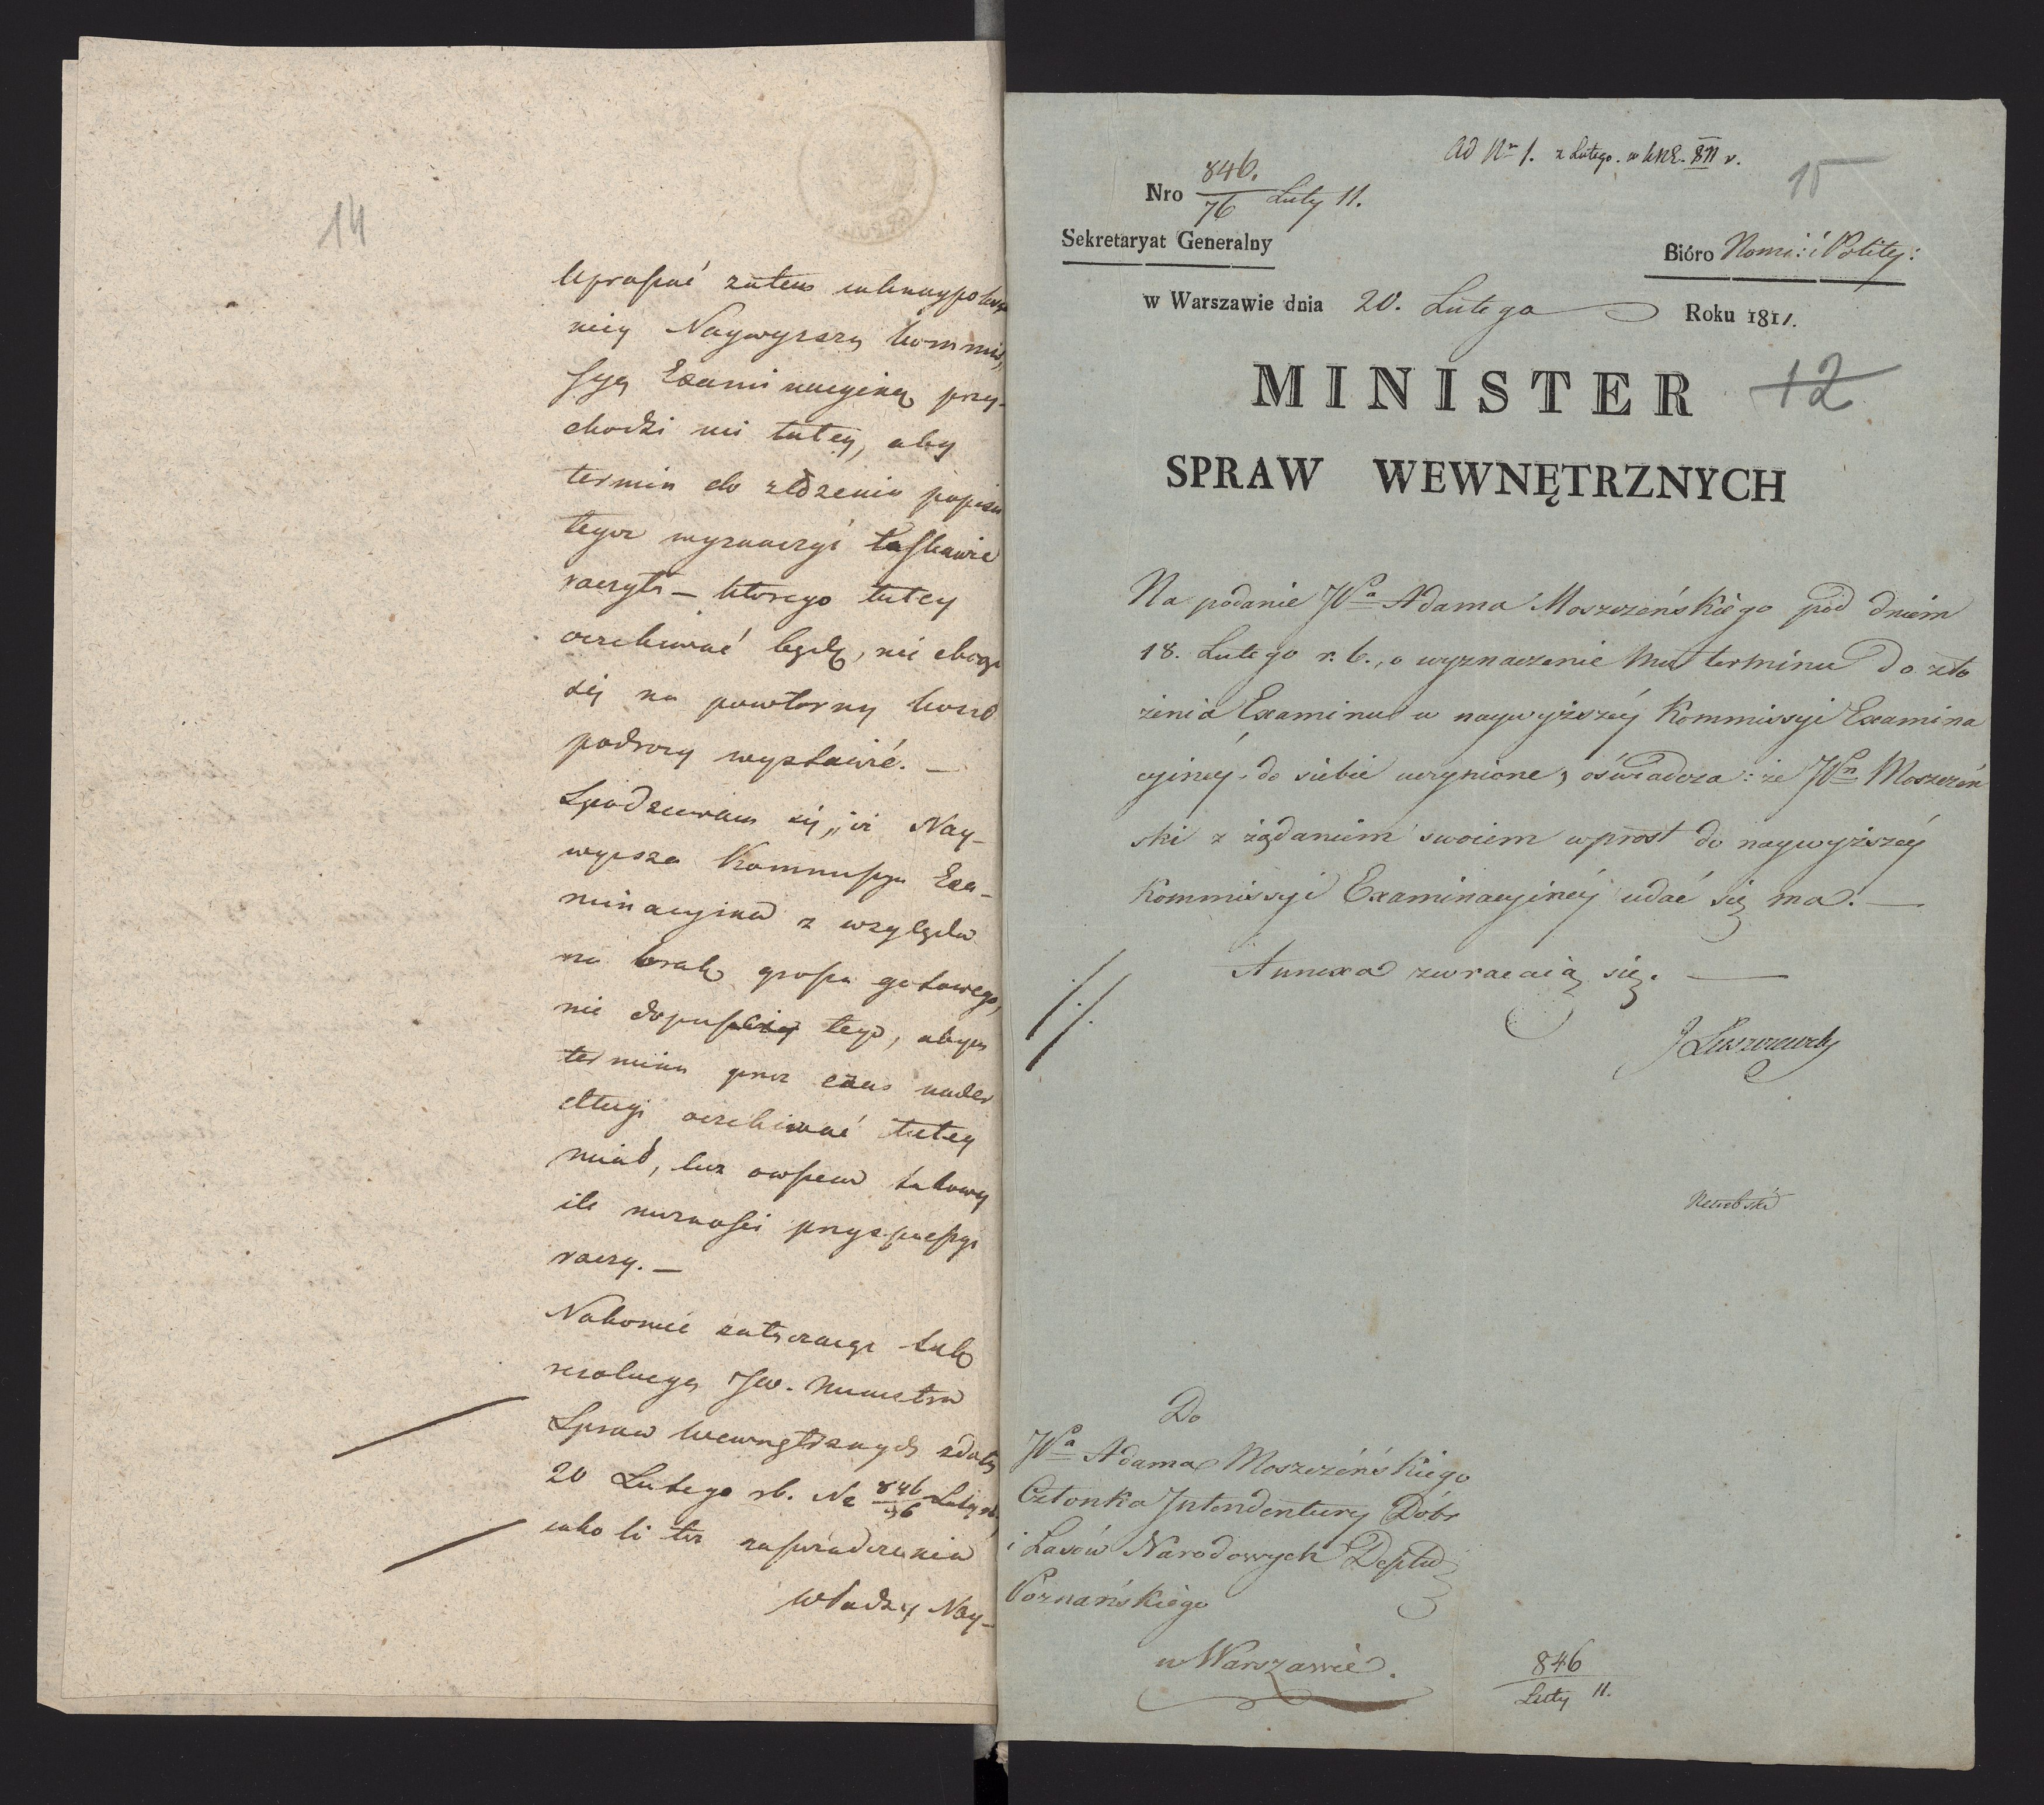 14
Uprosić zatem iaknaypokor
niey Naywyższą Kommis,
syą Examinacyiną przy-
chodzi mi tutey, aby
termin do złożenia popisu
tegoż wyznaczyć łaskawie
raczyła – którego tutey
oczekiwać będę, nie chcąc
się na powtórny koszt
podróży wystawić. –
Spodziewam się, iż Nay-
wyższa Kommissya Exa-
minacyina z względu
na brak grosza gotowego,
nie dopuści tego, abym
terminu przez czas nader
długi oczekiwać tutey
miał, lecz owszem takowy
ile możności przyspieszyć
raczy. –
Nakoniec załączaiąc tak
rezolucyą JW. Ministra
Spraw Wewnętrznych z daty
20 Lutego rb. Nr 846/76 Luty
iako li też zaświadczenia
władzy Nay-
Ad Nr 1. z Lutego. w KNE. 811 r.
15
Nro 846./76 Luty 11.
Sekretaryat Generalny
Bióro Nomi: i Polity:
w Warszawie dnia 20. Lutego Roku 1811.
MINISTER
12
SPRAW WEWNĘTRZNYCH
Na podanie JPa Adama Moszczeńskiego pod dniem
18. Lutego r. b., o wyznaczenie Mu terminu do zło
żenia Examinu w naywyższéy Kommissyi Examina
cyinéy do siebie uczynione, oświadcza: że JPn Moszczeń
ski z żądaniem swoiem wprost do naywyższéy
Kommissyi Examinacyinéy udać się ma. –
Annexa zwracaią się. –
J Łuszczewski
Do
JPa Adama Moszczeńskiego
Członka Intendentury Dóbr
i Lasów Narodowych Depttu
Poznańskiego
w Warszawie.
846
Luty 11.